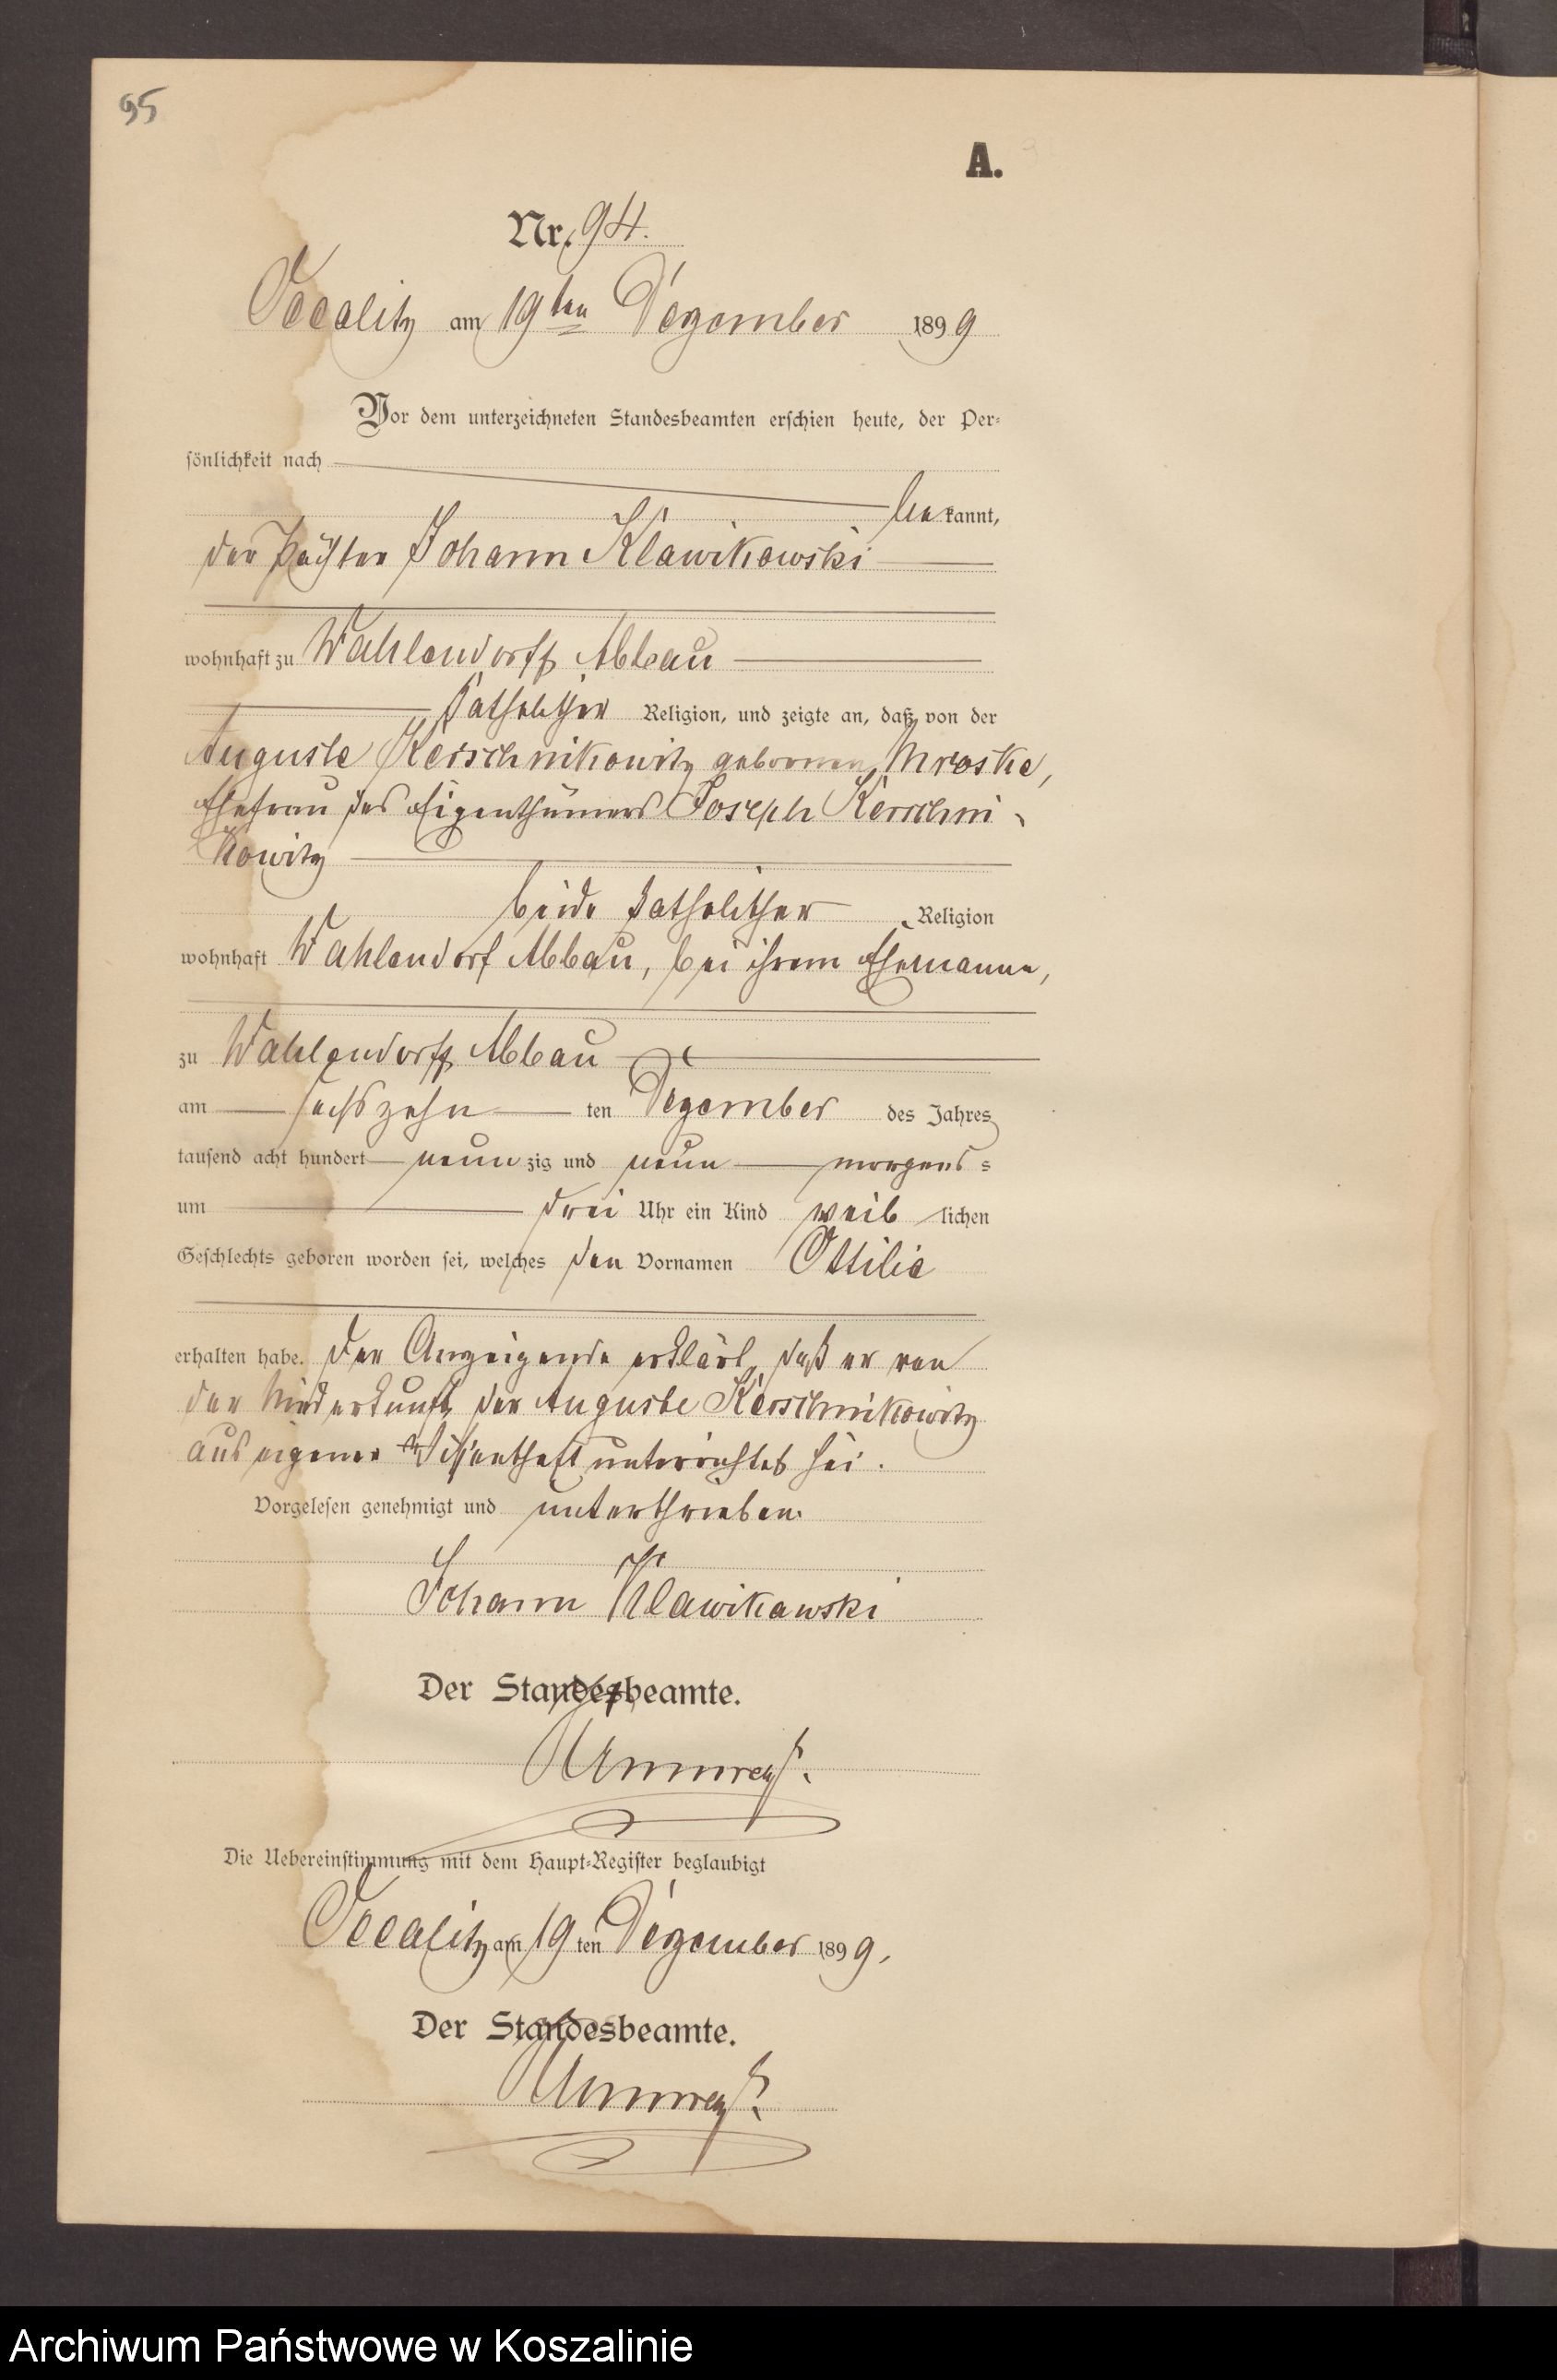 95
A.
Nr. 94.
Occalitz am 19ten Dezember 1899
Vor dem unterzeichneten Standesbeamten erschien heute, der Per-
sönlichkeit nach
bekannt,
der Pächter Johann Klawikowski
wohnhaft zu Wahlendorff Abbau
katholischer Religion, und zeigte an, daß von der
Auguste Kerschnikowitz geborenen Mroske,
Ehefrau des Eigenthümers Joseph Kerschni-
kowitz
beide katholischer Religion
wohnhaft Wahlendorf Abbau, bei ihrem Ehemanne,
zu Wahlendorff Abbau
am sechszehn ten Dezember des Jahres
tausend acht hundert neun zig und neun morgens
um drei Uhr ein Kind weib lichen
Geschlechts geboren worden sei, welches den Vornamen Ottilie
erhalten habe. Der Anzeigende erklärt, daß er von
der Niederkunft der Auguste Kerschnikowitz
aus eigener Wissenschaft unterrichtet sei.
Vorgelesen genehmigt und unterschrieben.
Johann Klawikawski
Der Standesbeamte.
Die Uebereinstimmung mit dem Haupt-Register beglaubigt
Occalitz am 19 ten Dezember 1899.
Der Standesbeamte.
Archiwum Państwowe w Koszalinie